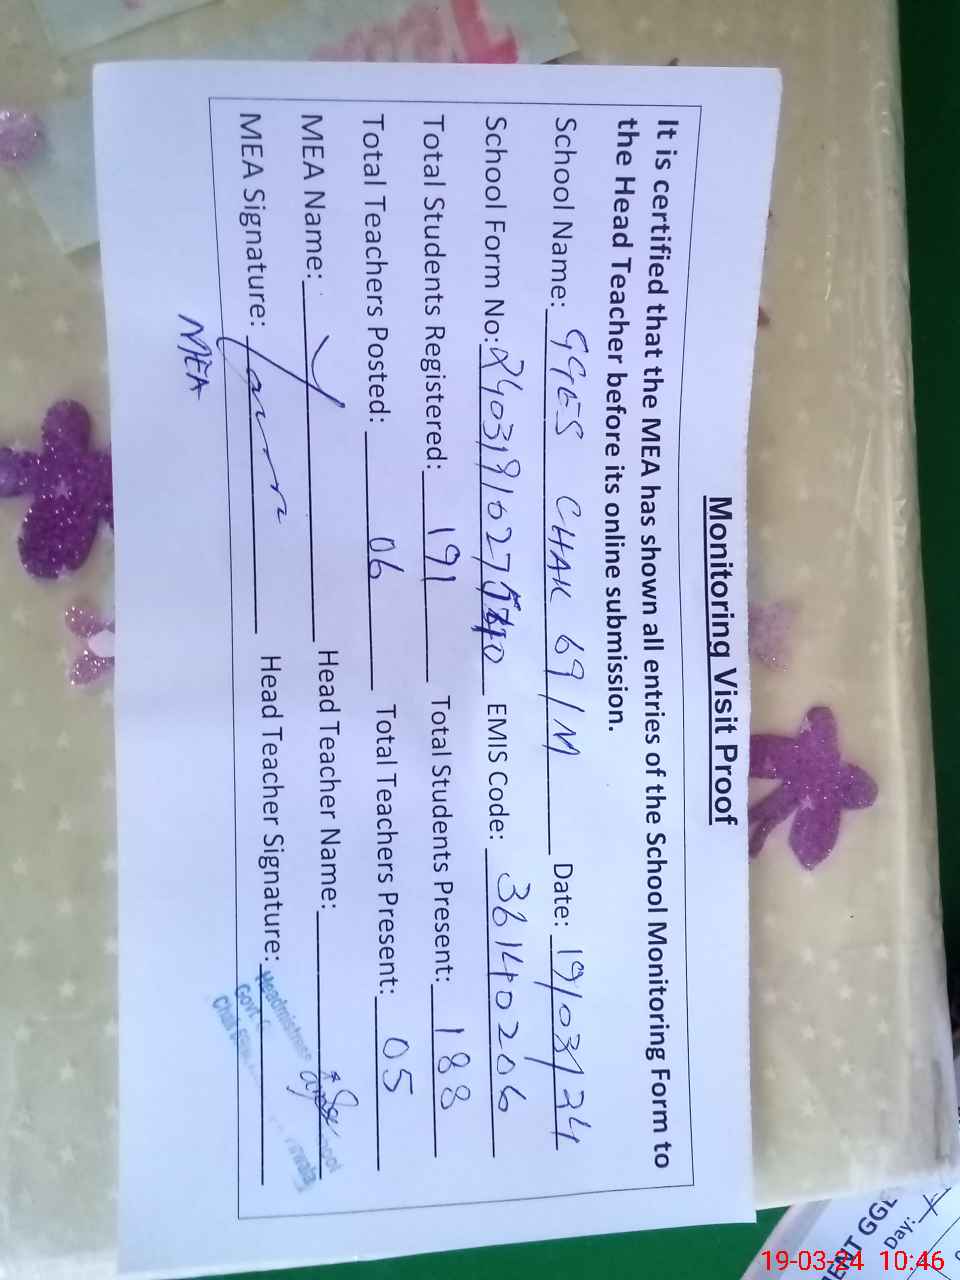 Monitoring Visit Proof
It is certified that the MEA has shown all entries of the School Monitoring Form to
the Head Teacher before its online submission.
School Name: GGES CHAK 69/M Date: 19/03/24
School Form No: EMIS Code: 36140206
Total Students Registered: 191 Total Students Present: 188
Total Teachers Posted: 06 Total Teachers Present: 05
MEA Name: Head Teacher Name:
MEA Signature: Head Teacher Signature:
MEA
Headmistress
Govt G
Chak
ENT GGE
Day:
19-03-24 10:46